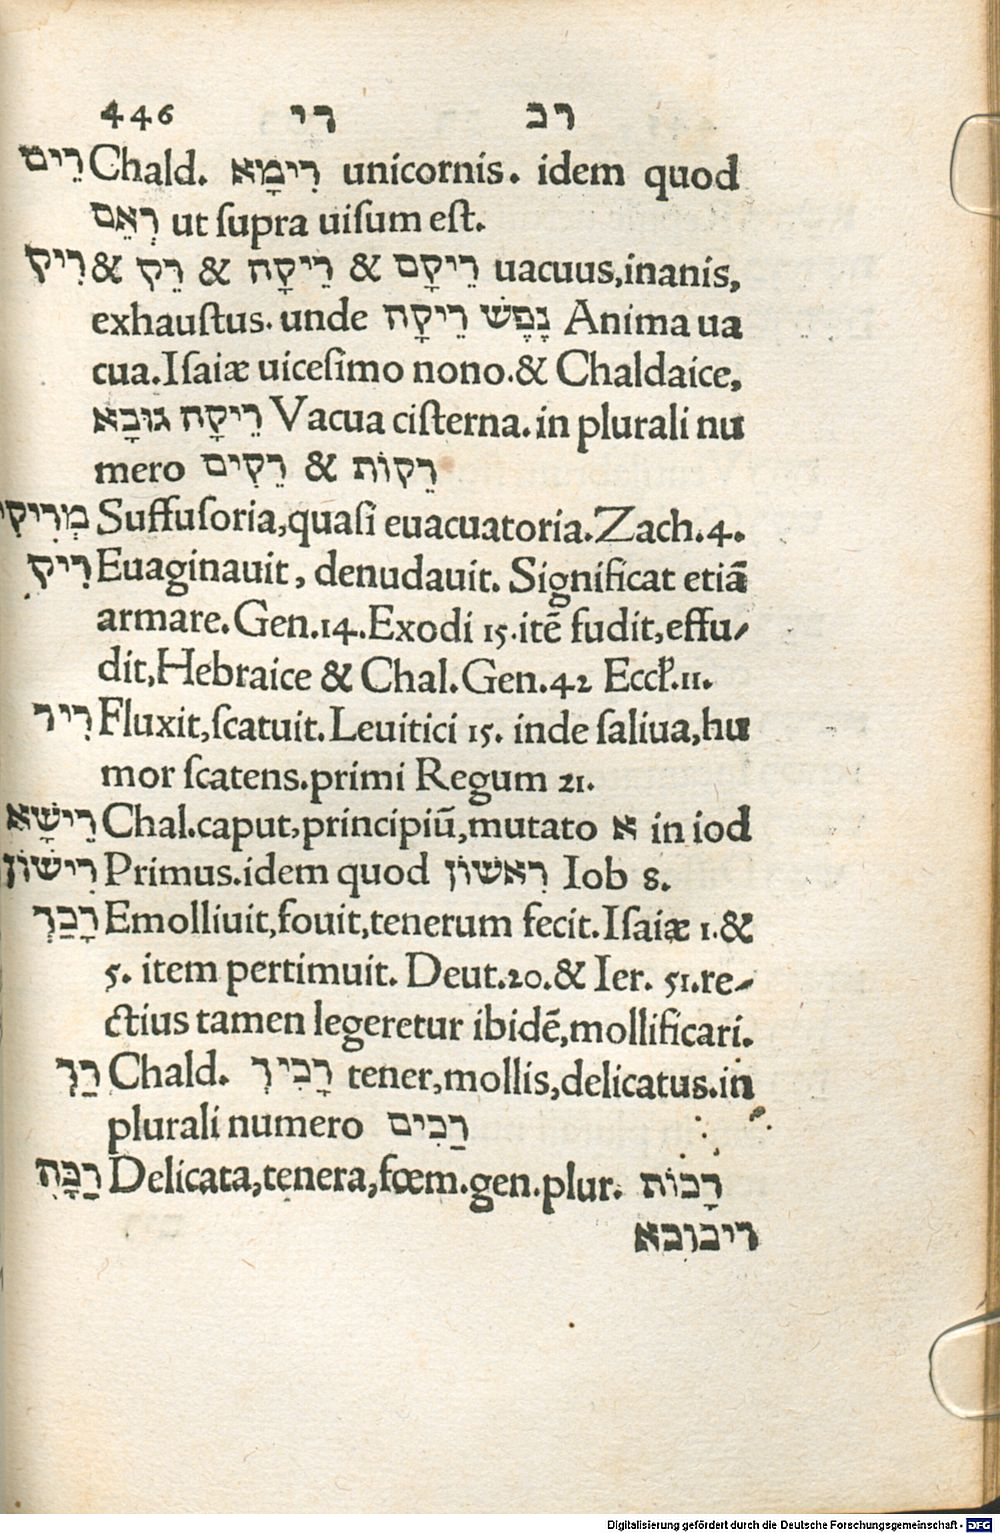 446 רי רב
רֵים Chald. רִימָא unicornis. idem quod
רְאֵם ut supra uiſum eſt.
רִיק & רֵיקָם & רֵיקָה & רֵק & uacuus,inanis,
exhauſtus. unde נֶפֶשׁ רֵיקָה Anima ua
cua.Iſaiæ uiceſimo nono.& Chaldaice,
רֵיקָה גוּבָא Vacua ciſterna.in plurali nu
mero רֵקִים & רֵקוֹת
Suffuſoria,quaſi euacuatoria.Zach.4.
רִיק Euaginauit, denudauit. Significat etiā
armare.Gen.14.Exodi 15.itē fudit,effu-
dit,Hebraice & Chal.Gen.42 Eccł.11.
רִיר Fluxit,ſcatuit.Leuitici 15. inde ſaliua,hu
mor ſcatens.primi Regum 21.
רֵישָׁא Chal.caput,principiū,mutato א in iod
רִישׁוֹן Primus.idem quod רִאשׁוֹן Iob 8.
רָכַךְ Emolliuit,fouit,tenerum fecit.Iſaiæ 1.&
5. item pertimuit. Deut.20.& Ier. 51.re-
ctius tamen legeretur ibidē,mollificari.
רַךְ Chald. רָכִיךְ tener,mollis,delicatus.in
plurali numero רַכִים
רַכָּה Delicata,tenera,fœm.gen.plur. רָכוֹת
ריכוכא
Digitalisierung gefördert durch die Deutsche Forschungsgemeinschaft - DFG